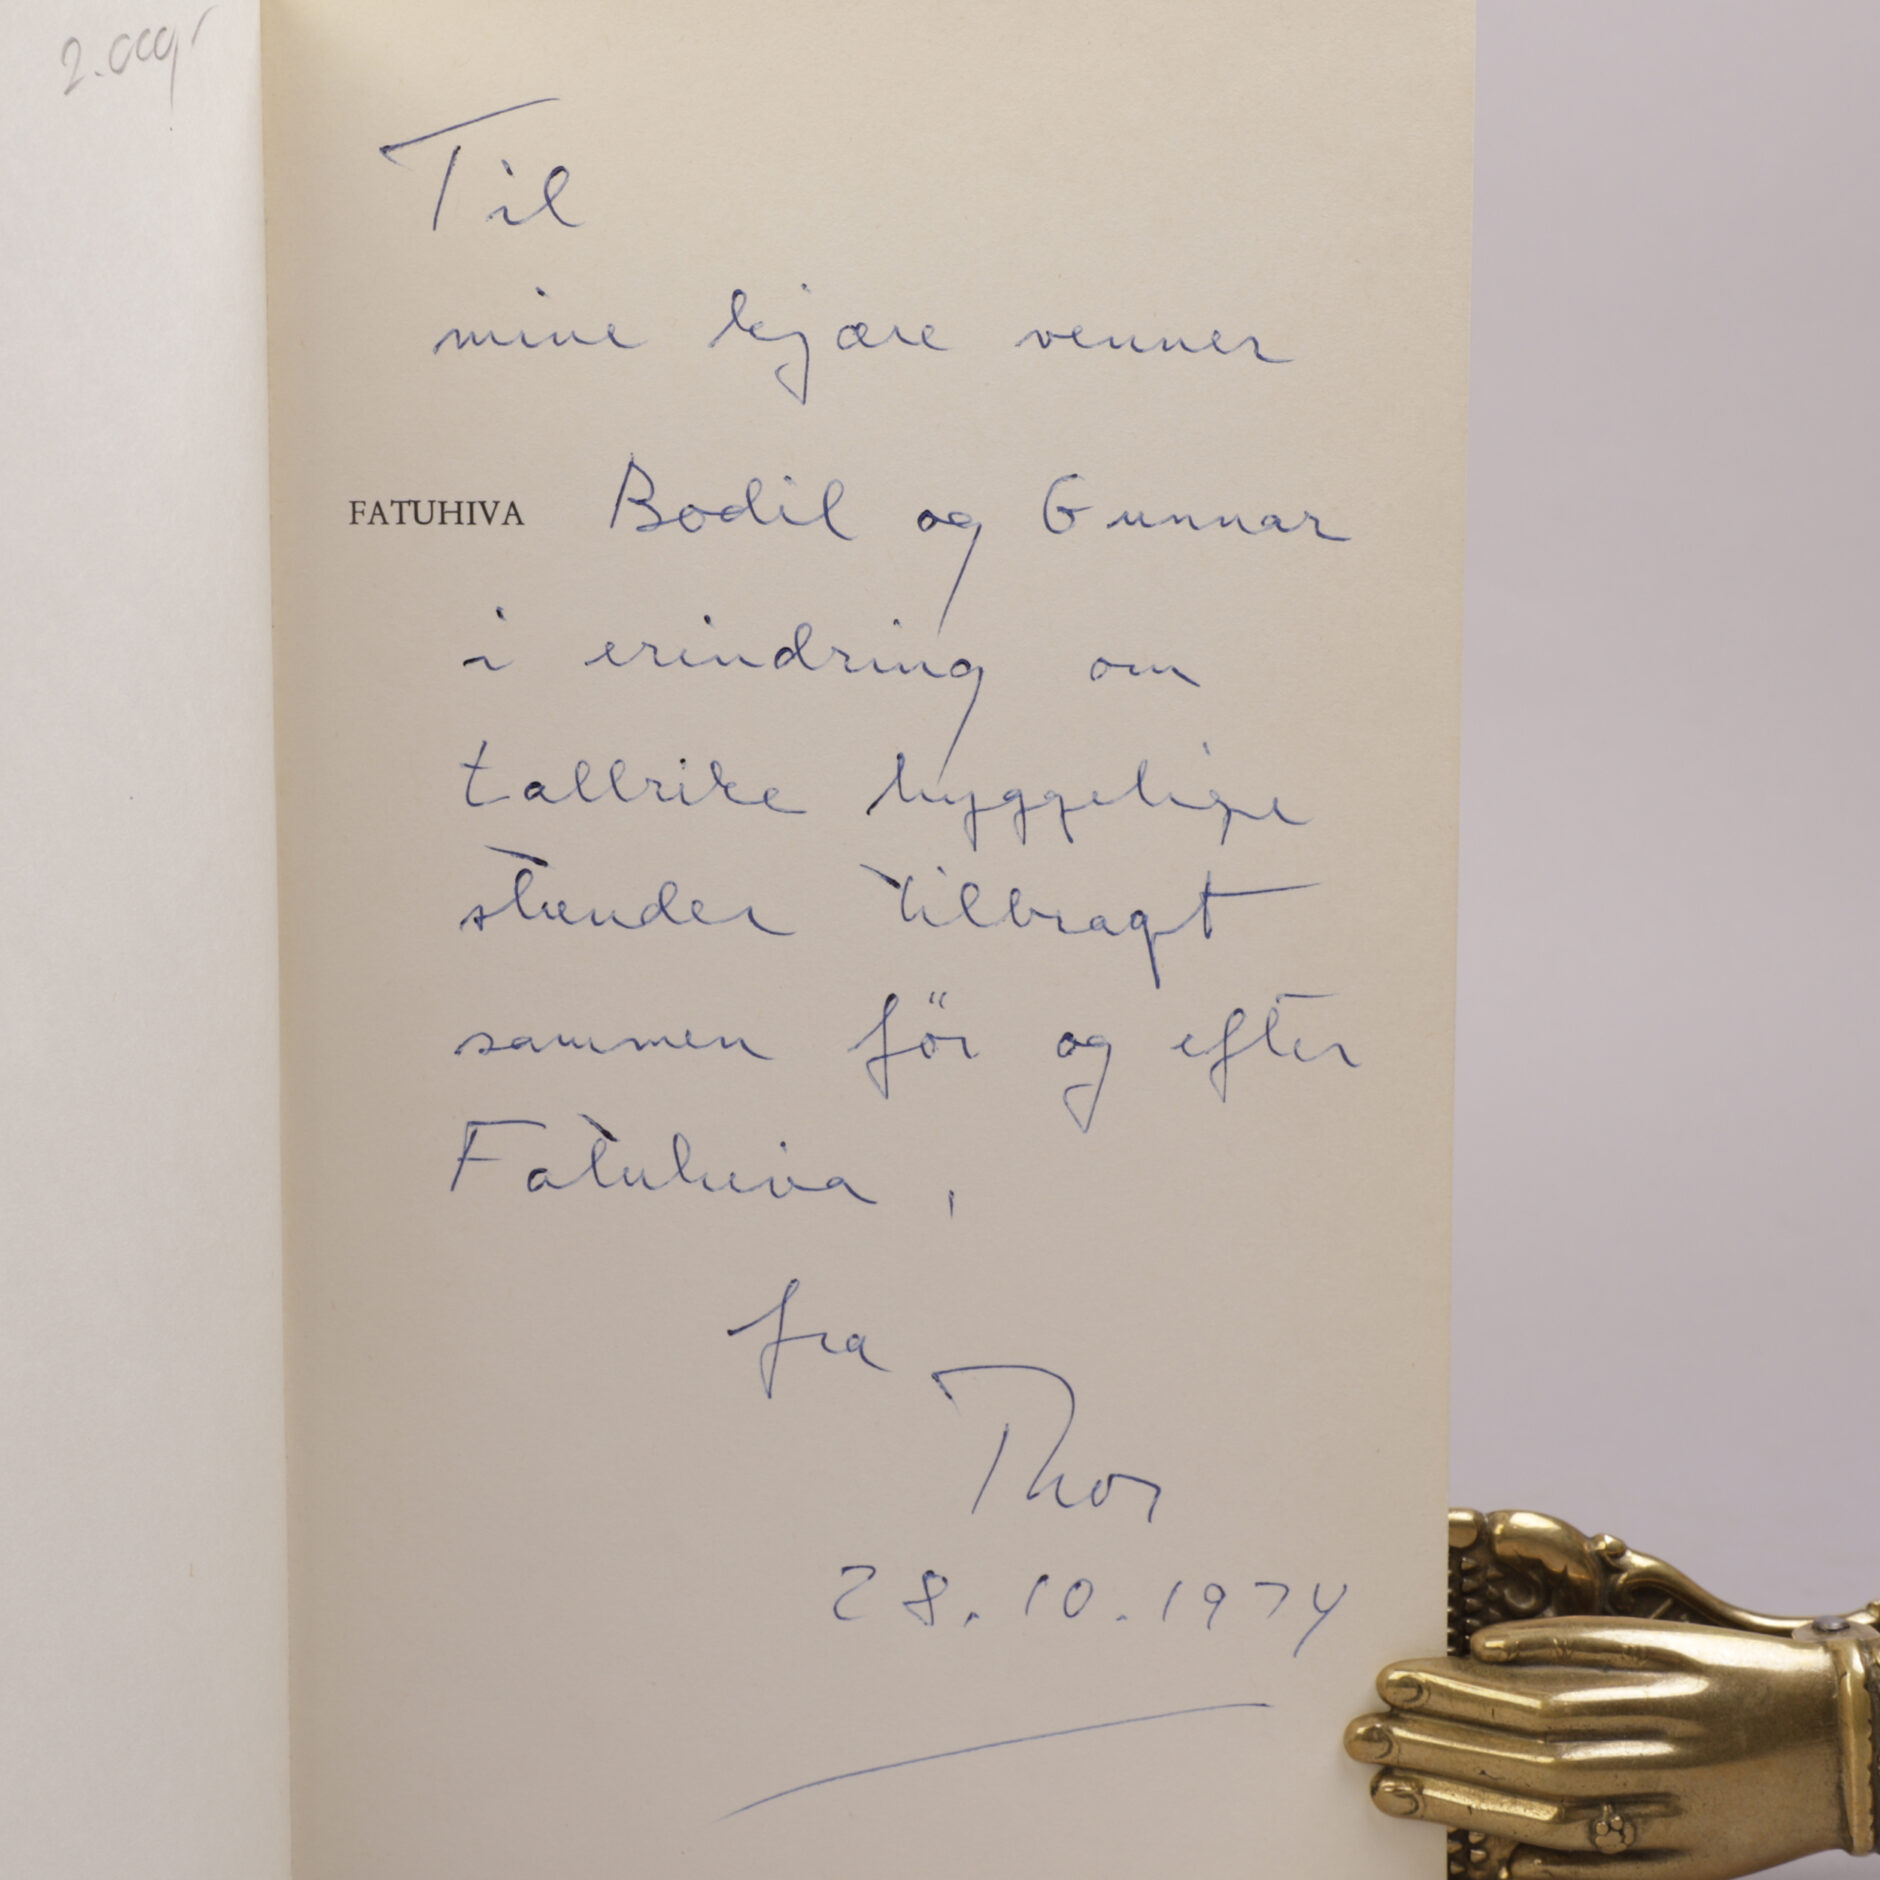 Til
mine kjære venner
FATUHIVA Bodil og Gunnar
i erindring om
tallrike hyggelige
stunder tilbragt
sammen för og efter
Fatuhiva,
fra
Thor
28.10.1974